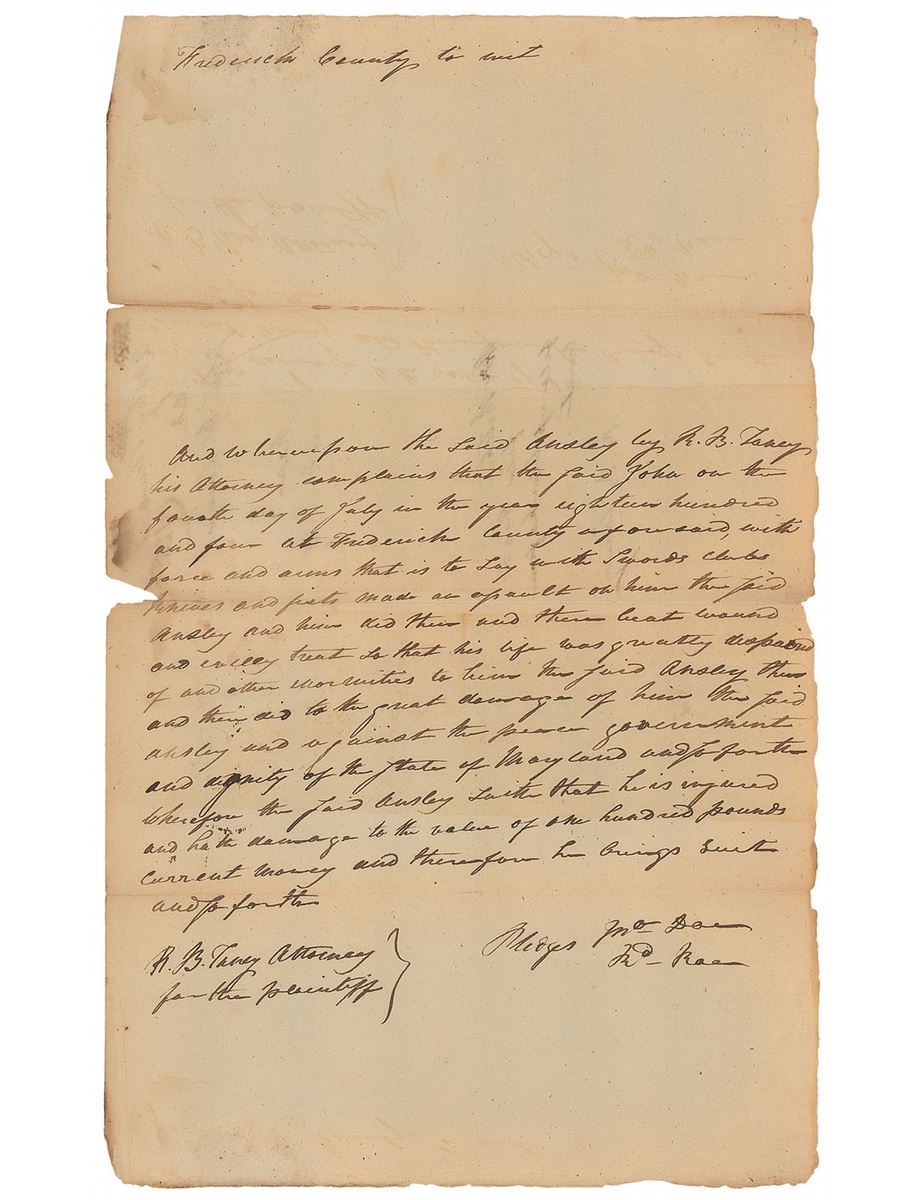 Frederick County to wit
And whereupon the said Ansley by R. B. Taney
his Attorney complains that the said John on the
fourth day of July in the year eighteen hundred
and four at Frederick County aforesaid, with
force and arms that is to say with swords clubs
knives and fists made an assault on him the said
Ansley and him did then and there beat wound
and evilly treat so that his life was greatly despaired
of and other enormities to him the said Ansley then
and there did to the great damage of him the said
ansley and against the peace government
and dignity of the state of Maryland and so forth
Wherefore the said Ansley saith that he is injured
and hath damage to the value of one hundred pounds
current money and therefore he brings suit
and so forth
R. B. Taney Attorney
for the plaintiff
Pledges Jno Doe
Rd Roe